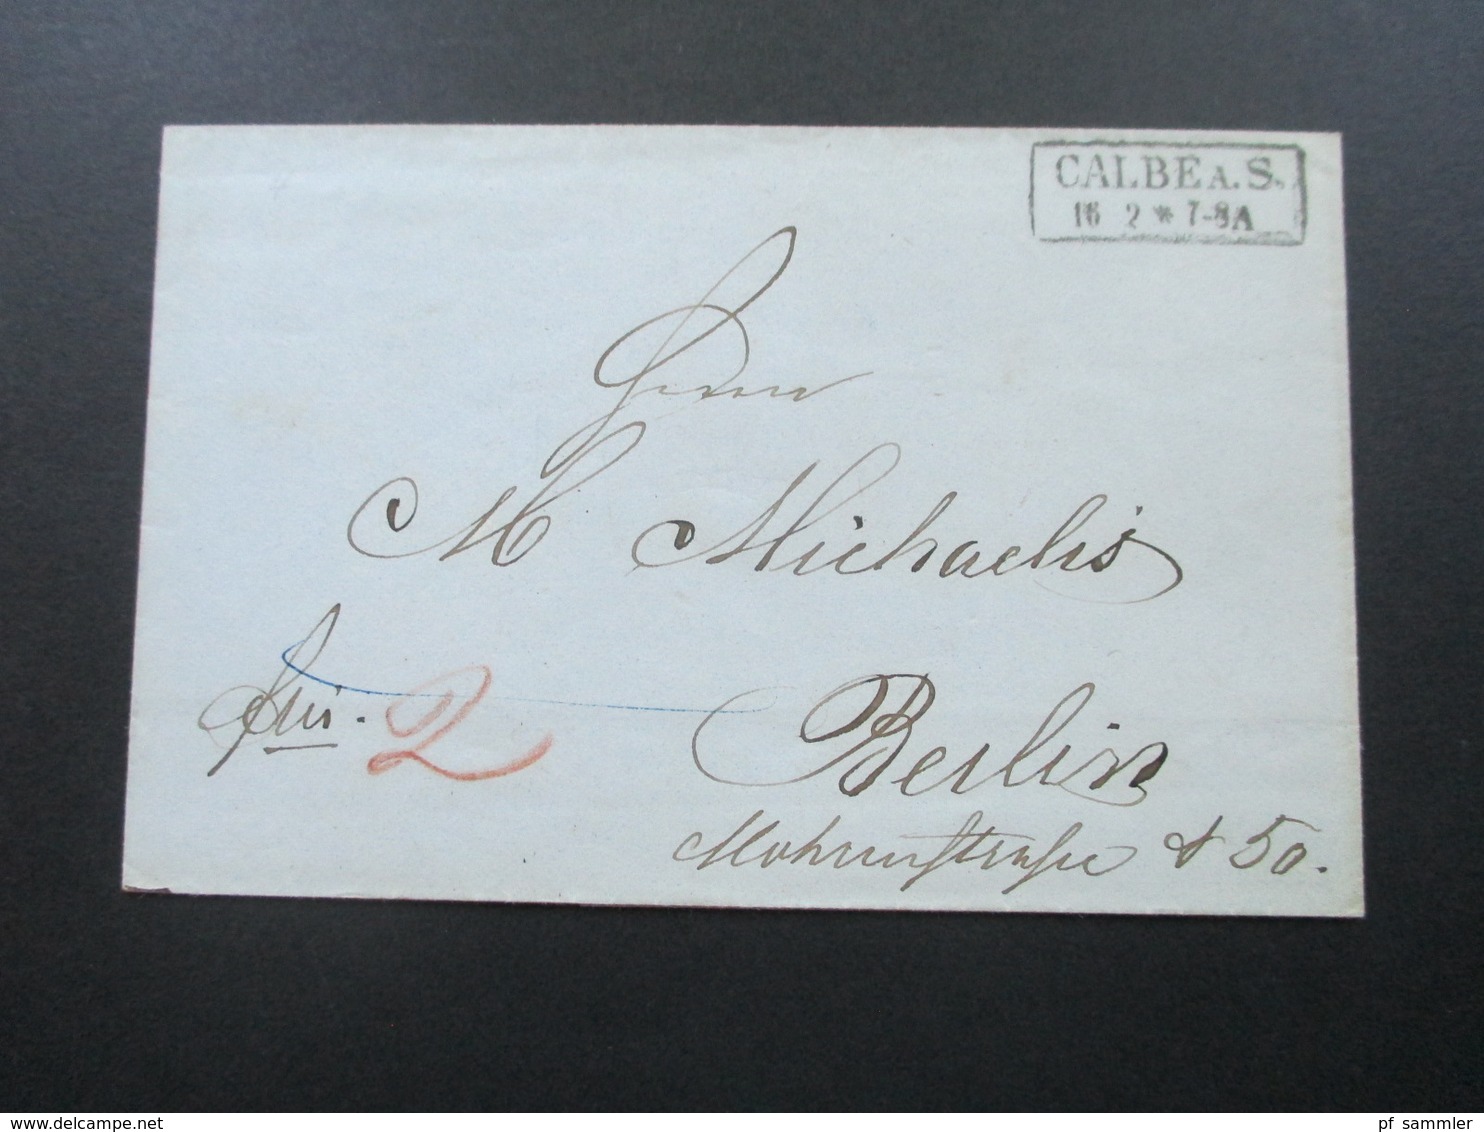 CALBE A. S.
16 2 * 7-8 A
Herrn
M Michaelis
frei. 2
Berlin
Mohrenstrasse № 50.
delcampe.net
pf sammler